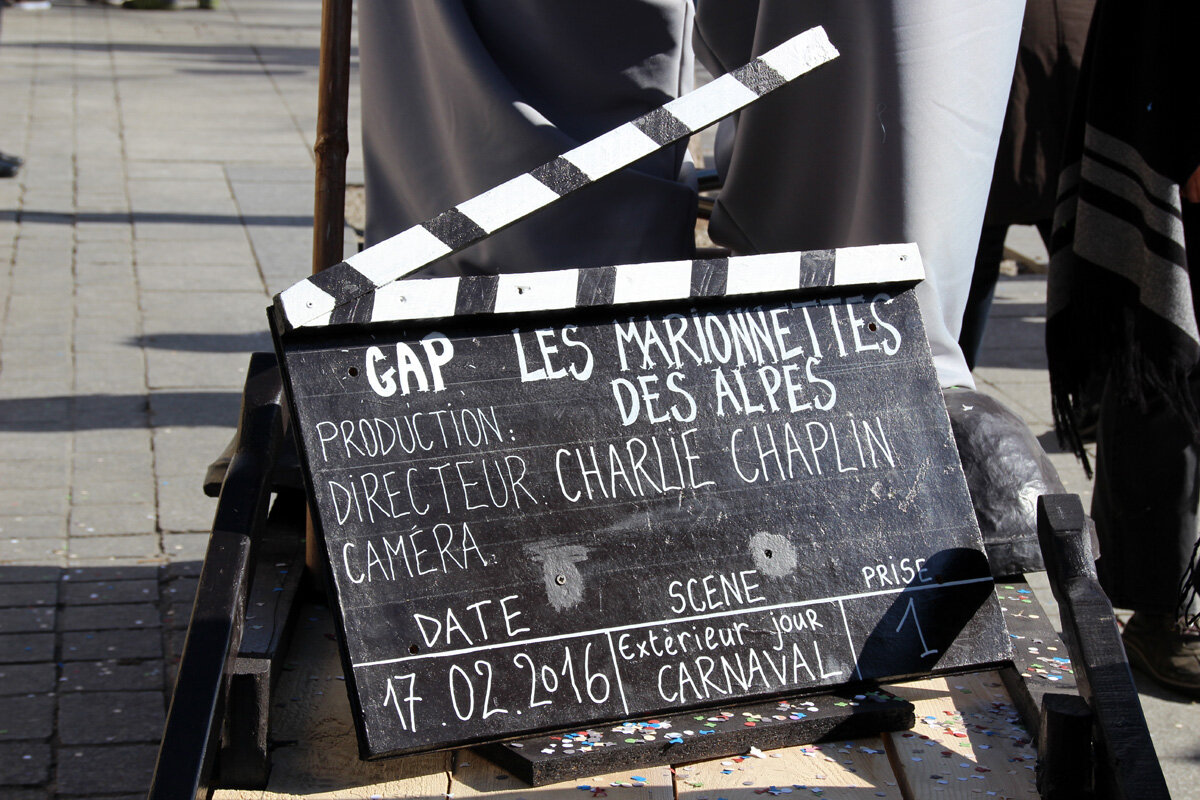 GAP LES MARIONNETTES
DES ALPES
PRODUCTION:
DIRECTEUR. CHARLIE CHAPLIN
CAMÉRA.
DATE SCENE PRISE
17.02.2016 Extèrieur jour 1
CARNAVAL